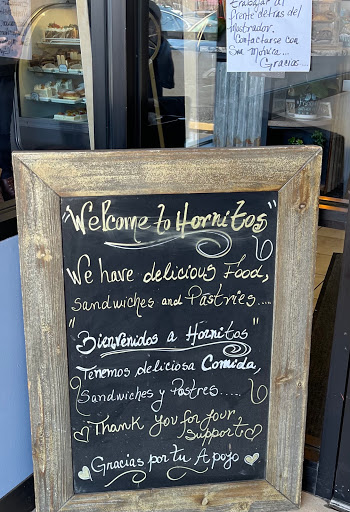 trabajar al
frente detras del
mostrador.
Contactarse con
Sra Monica...
Gracias...
"Welcome to Hornitos"
We have delicious Food,
sandwiches and Pastries....
"Bienvenidos a Hornitos"
Tenemos deliciosa Comida,
Sandwiches y Pastres.....
Thank you for your
support
Gracias por tu Apoyo